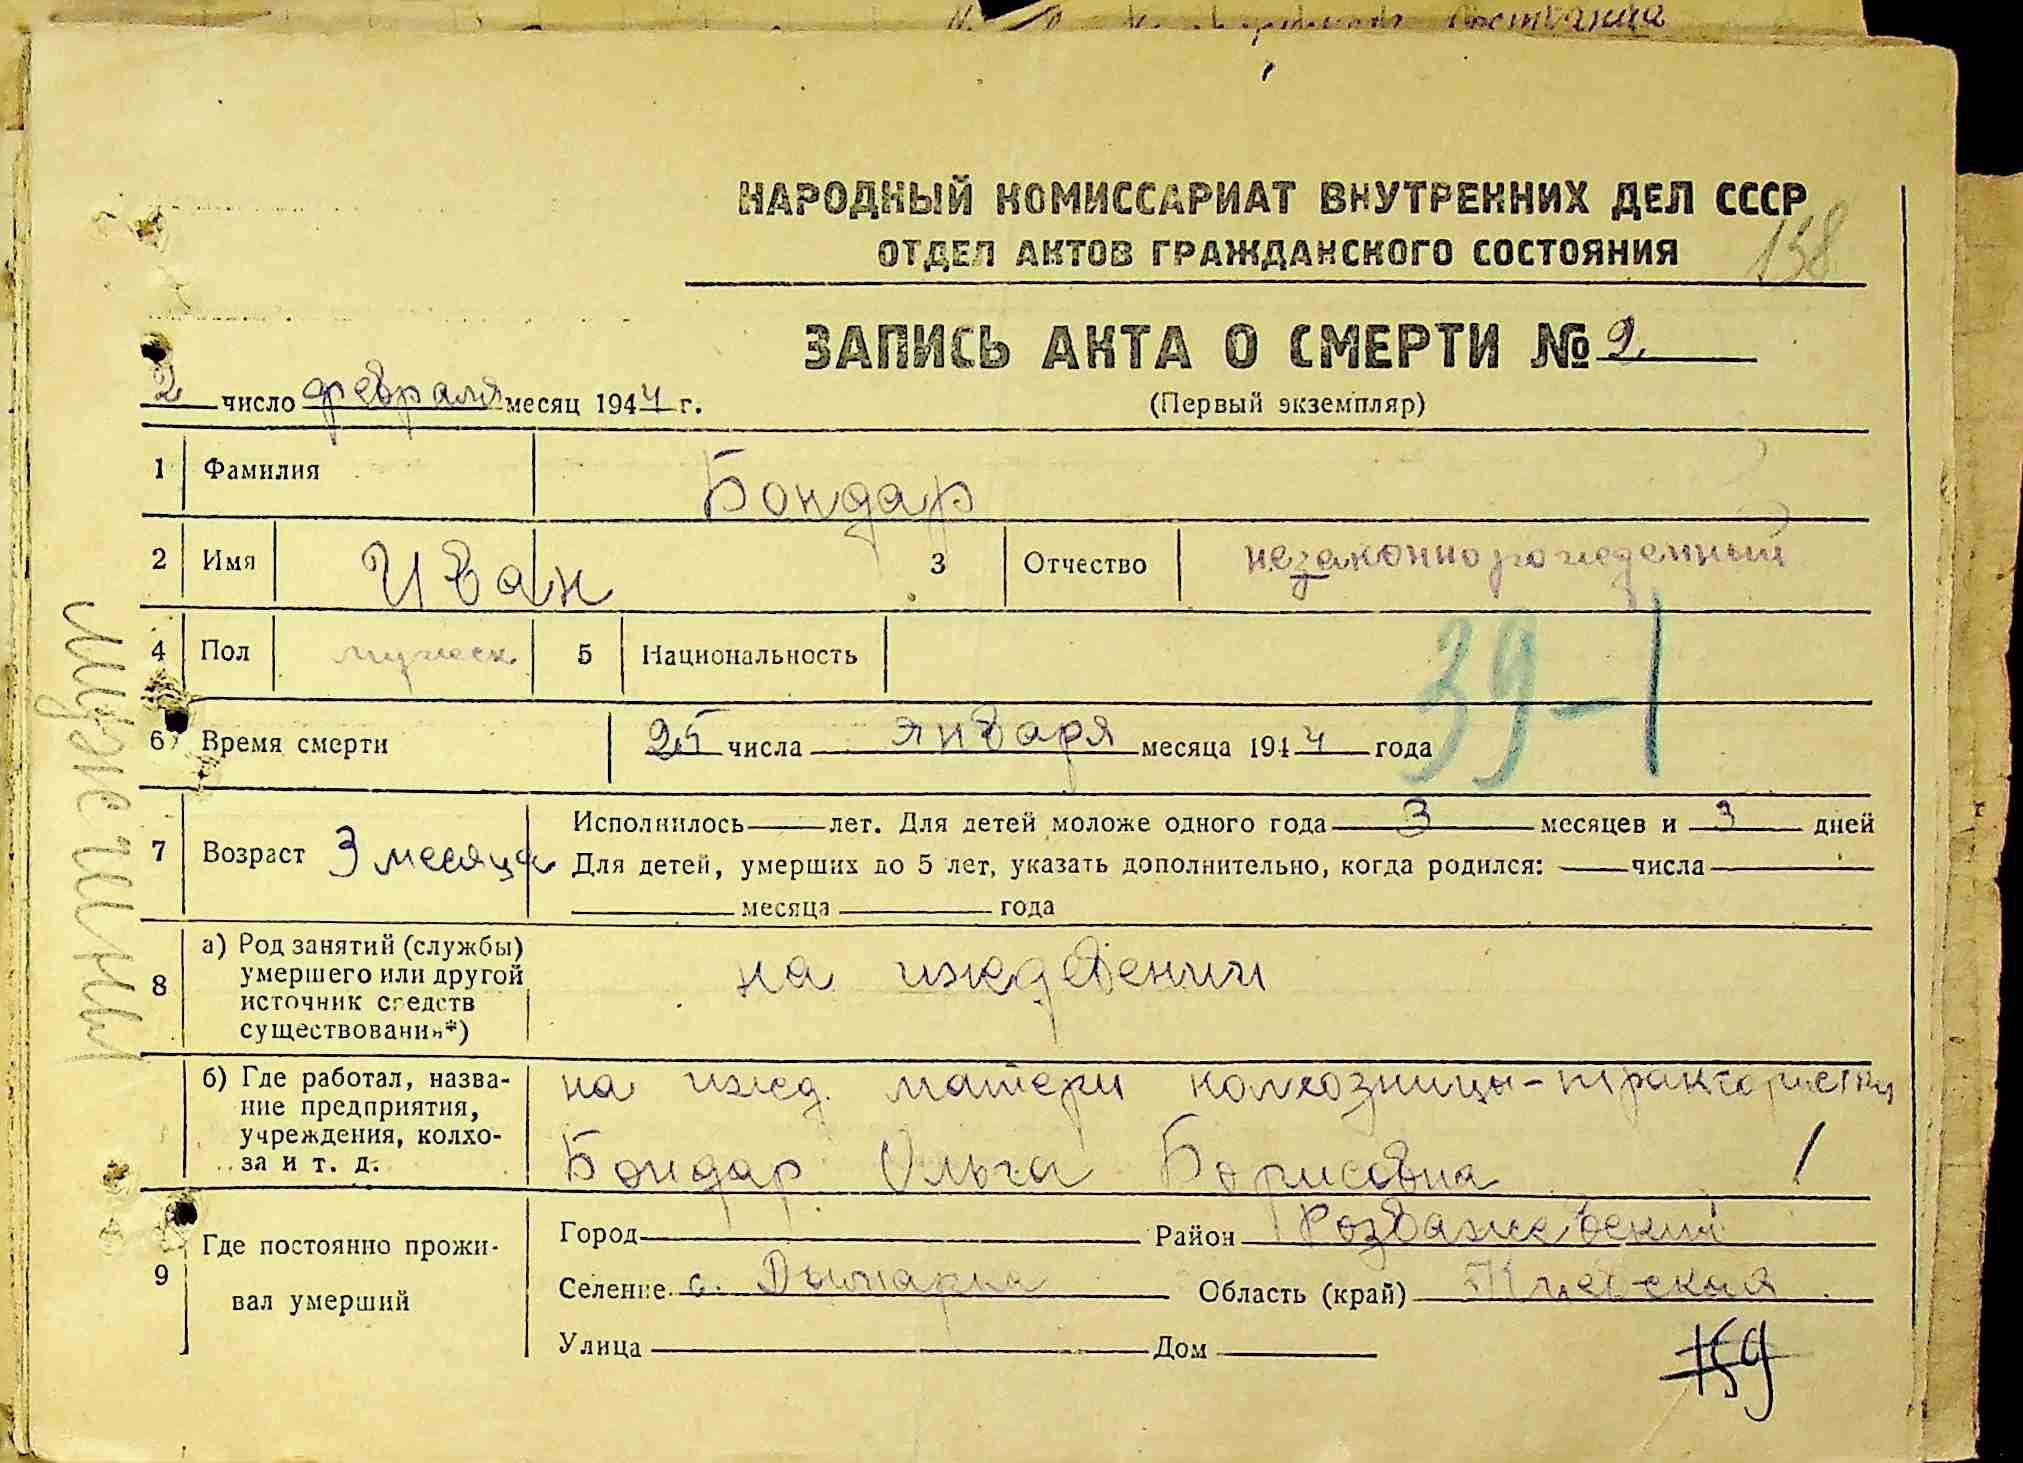 НАРОДНЫЙ КОМИССАРИАТ ВНУТРЕННИХ ДЕЛ СССР
ОТДЕЛ АКТОВ ГРАЖДАНСКОГО СОСТОЯНИЯ
158
ЗАПИСЬ АКТА О СМЕРТИ № 2
2 число февраля месяц 1944 г.
(Первый экземпляр)
1 Фамилия Бондар
2 Имя Иван 3 Отчество незаконнорожденный
4 Пол мужеск. 5 Национальность
39-1
6 Время смерти 25 числа января месяца 1944 года
7 Возраст 3 месяца Исполнилось лет. Для детей моложе одного года 3 месяцев и 3 дней
Для детей, умерших до 5 лет, указать дополнительно, когда родился: числа
месяца года
8 а) Род занятий (службы) умершего или другой источник средств существования*) на иждевении
б) Где работал, назва-
ние предприятия,
учреждения, колхо-
за и т. д.
на ижд. матери колхозницы-трактористки
Бондар Ольга Борисовна
9 Где постоянно прожи-
вал умерший
Город Район Розважевский
Селение с. Область (край) Киевская
Улица Дом
159